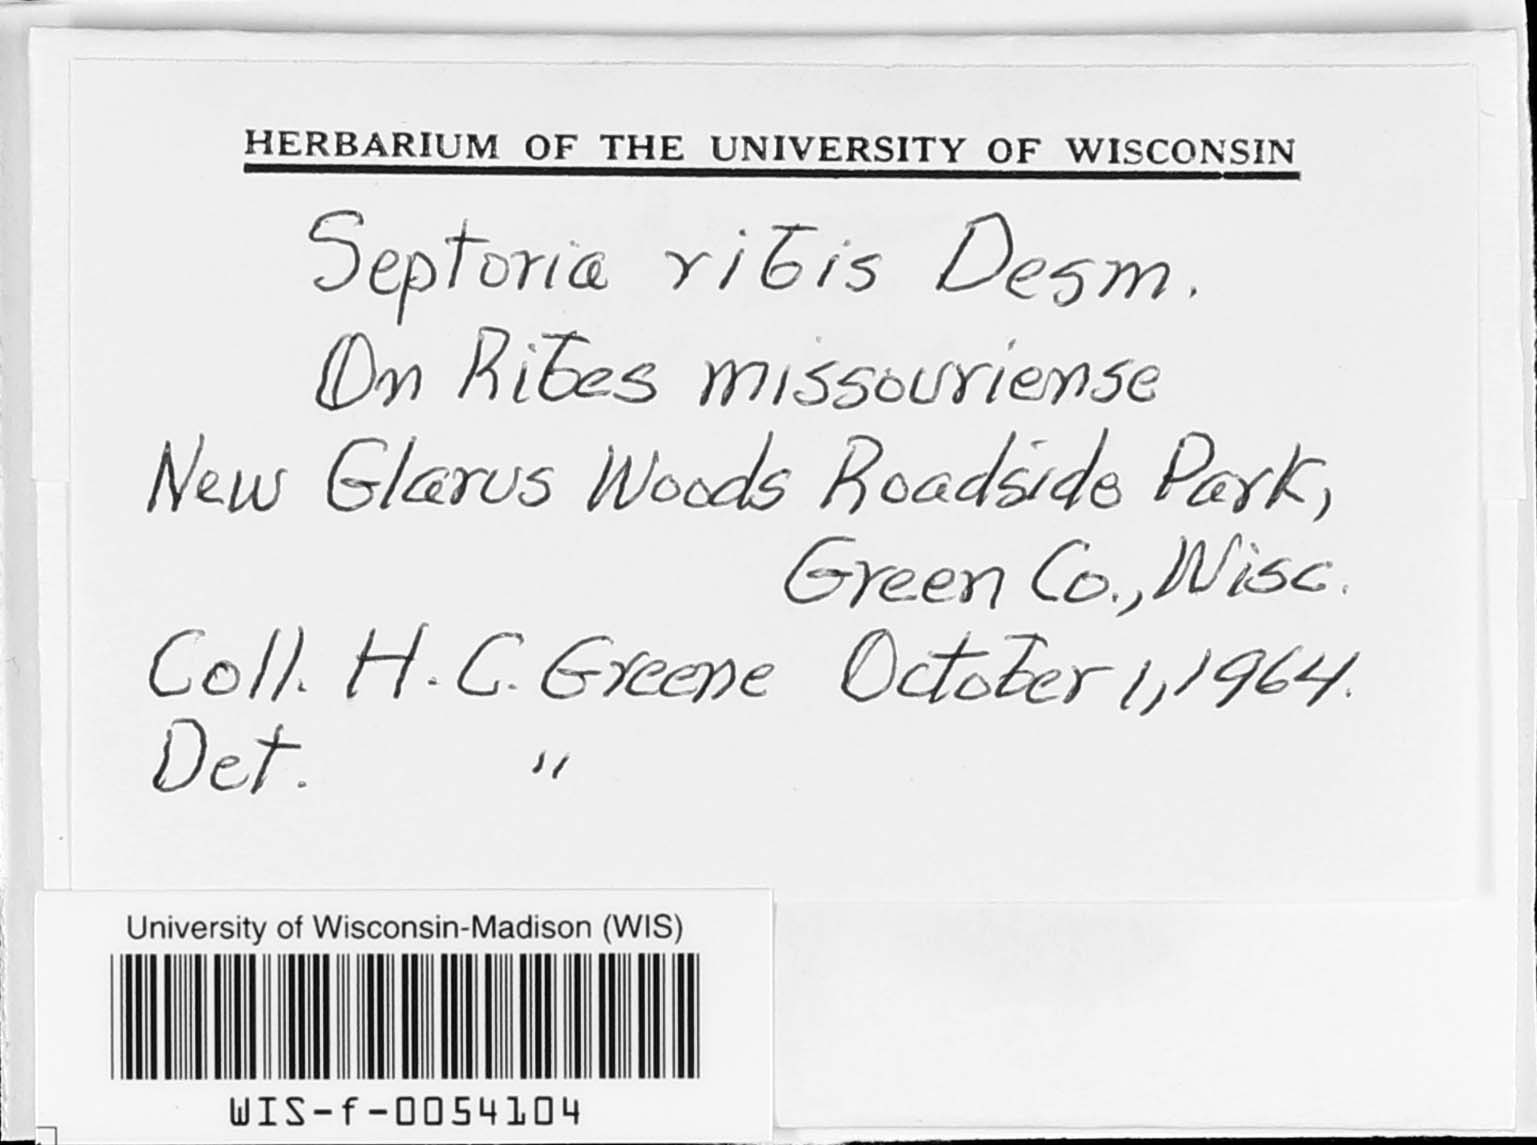 HERBARIUM OF THE UNIVERSITY OF WISCONSIN
Septoria ribis Desm.
On Ribes missouriense
New Glarus Woods Roadside Park,
Green Co., Wisc.
Coll. H. C. Greene October 1, 1964.
Det. "
University of Wisconsin-Madison (WIS)
WIS-f-0054104